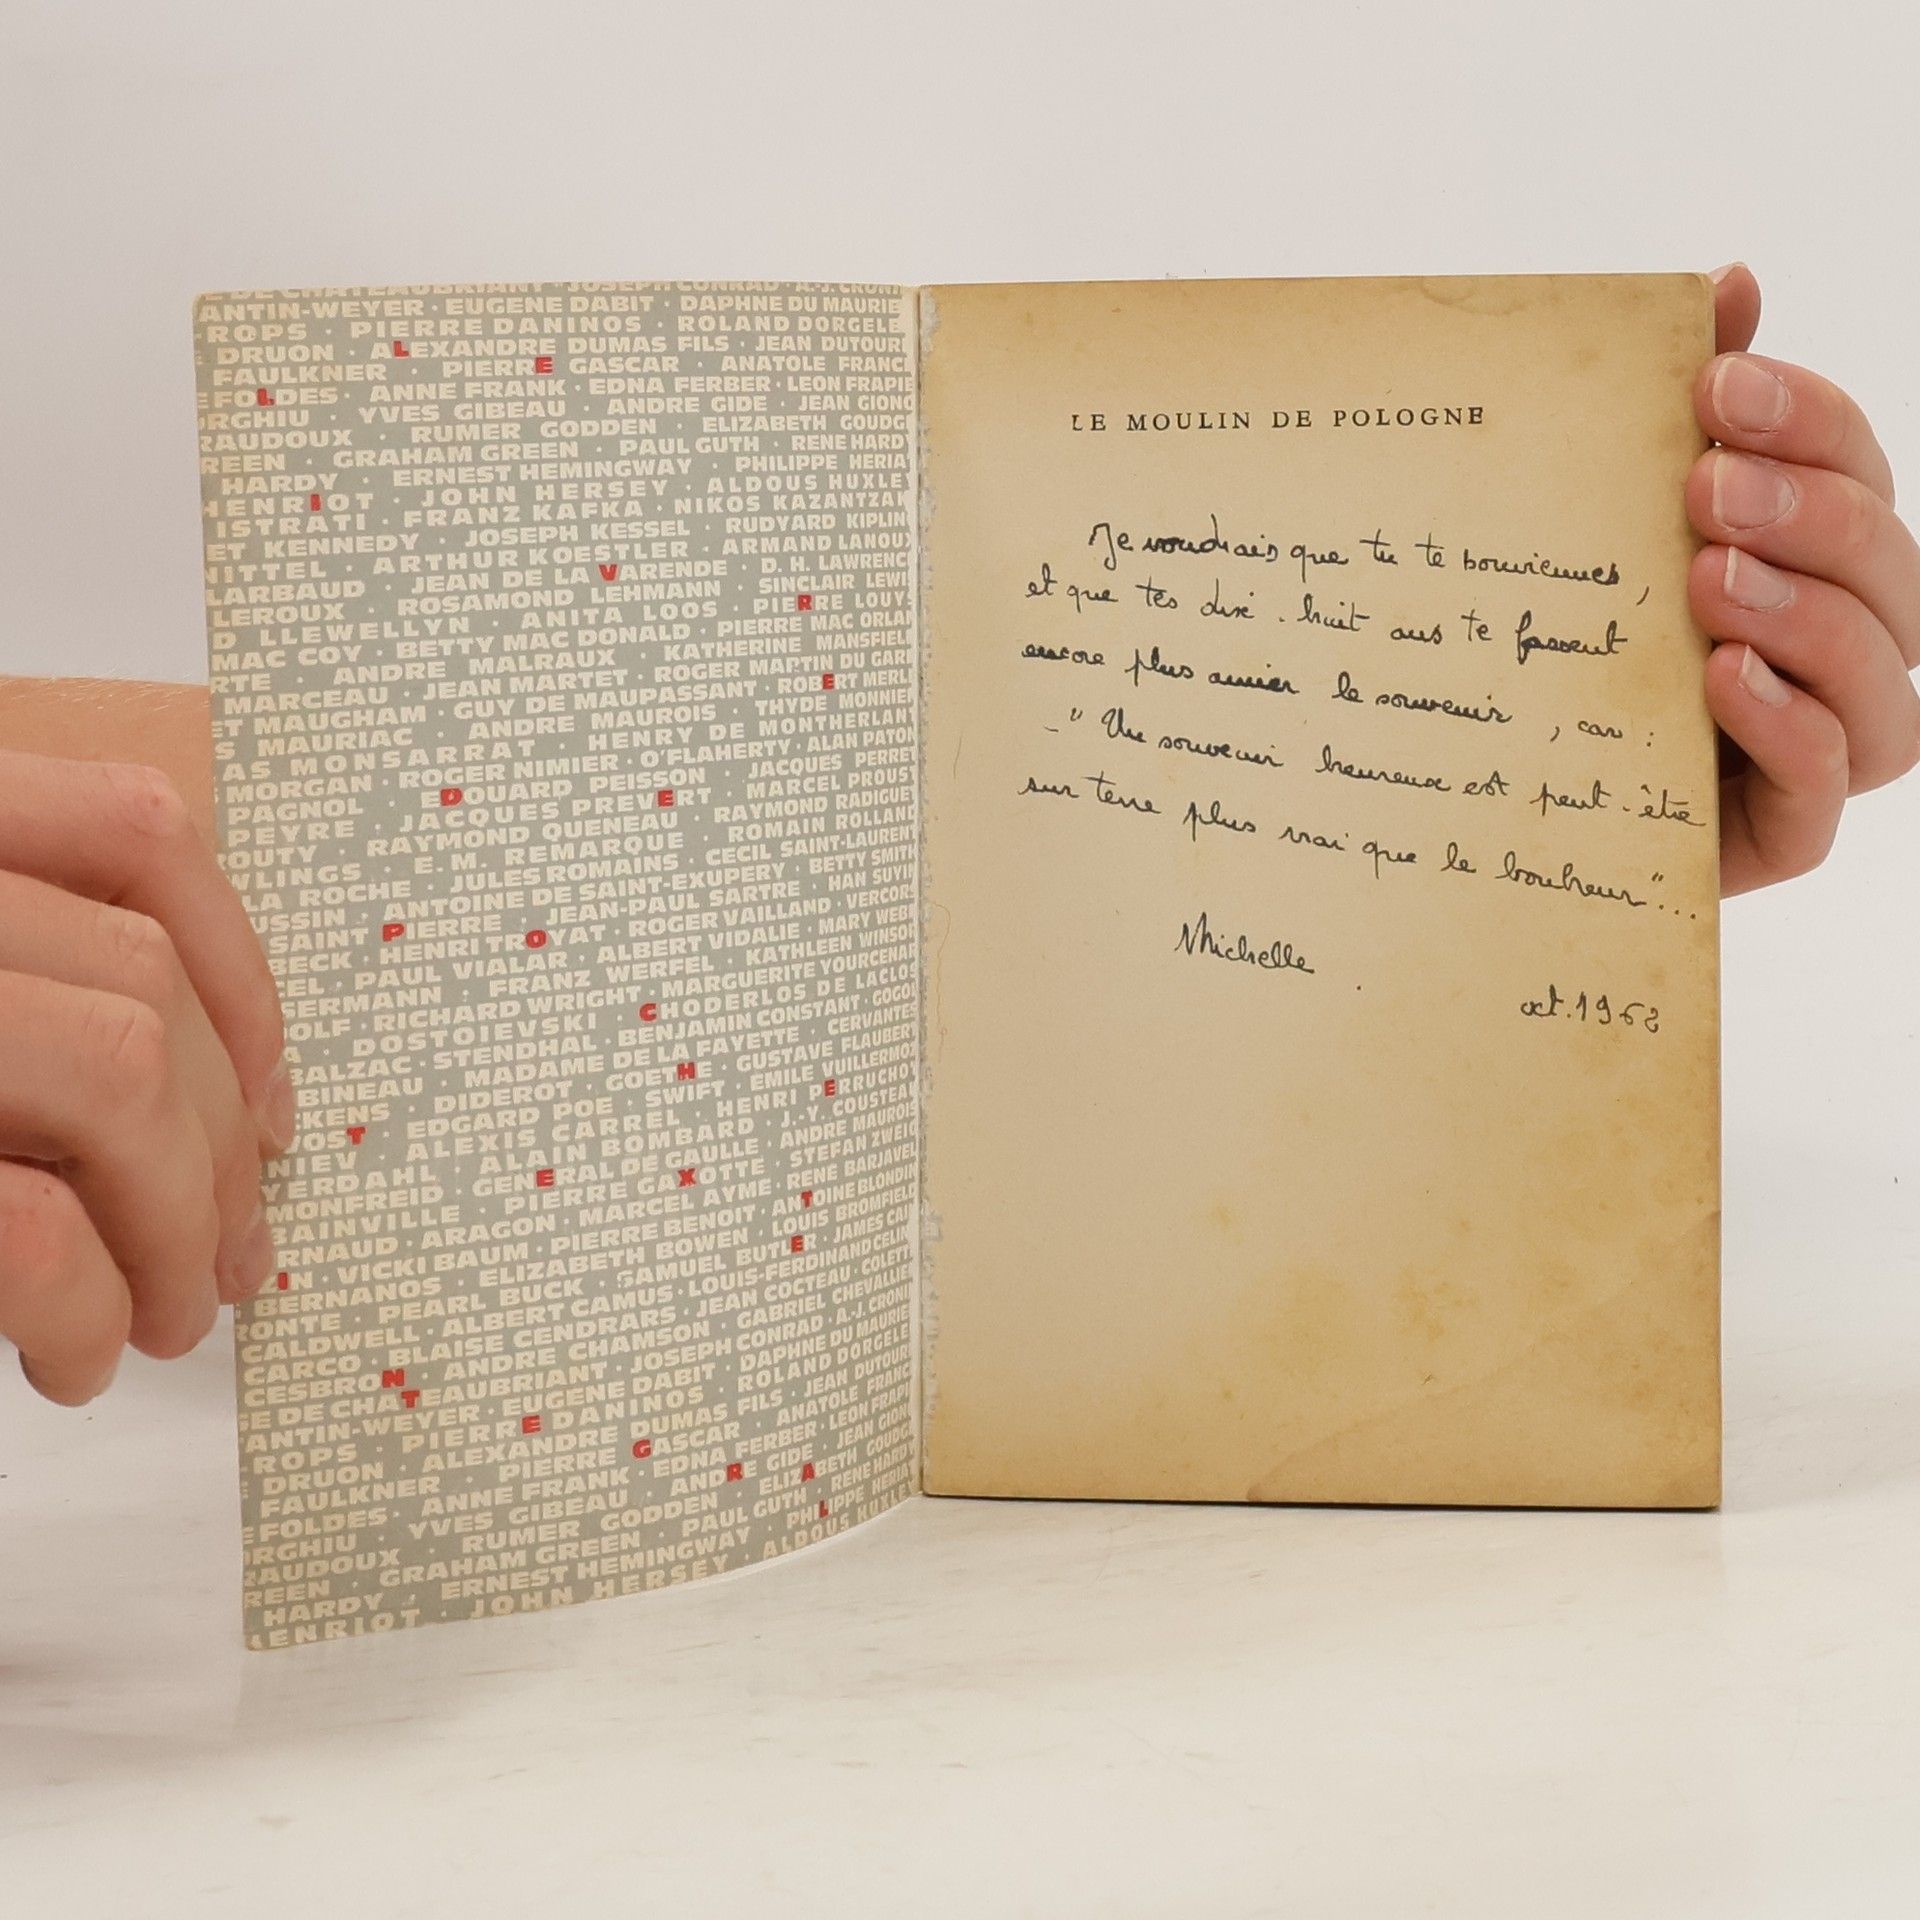 E DE CHATEAUBRIANT · JOSEPH CONRAD · A.-J. CRONI
ANTIN-WEYER · EUGENE DABIT · DAPHNE DU MAURIE
ROPS · PIERRE DANINOS · ROLAND DORGELE
DRUON · ALEXANDRE DUMAS FILS · JEAN DUTOUR
FAULKNER · PIERRE GASCAR · ANATOLE FRANC
FOLDES · ANNE FRANK · EDNA FERBER · LEON FRAPIE
ORGHIU · YVES GIBEAU · ANDRE GIDE · JEAN GIONO
RAUDOUX · RUMER GODDEN · ELIZABETH GOUDG
REEN · GRAHAM GREEN · PAUL GUTH · RENE HARDY
HARDY · ERNEST HEMINGWAY · PHILIPPE HERIA
HENRIOT · JOHN HERSEY · ALDOUS HUXLEY
ISTRATI · FRANZ KAFKA · NIKOS KAZANTZAK
ET KENNEDY · JOSEPH KESSEL · RUDYARD KIPLIN
NITTEL · ARTHUR KOESTLER · ARMAND LANOUX
LARBAUD · JEAN DE LA VARENDE · D. H. LAWRENC
LEROUX · ROSAMOND LEHMANN · SINCLAIR LEWI
D LLEWELLYN · ANITA LOOS · PIERRE LOUYS
MAC COY · BETTY MAC DONALD · PIERRE MAC ORLAN
RTE · ANDRE MALRAUX · KATHERINE MANSFIEL
MARCEAU · JEAN MARTET · ROGER MARTIN DU GARD
ET MAUGHAM · GUY DE MAUPASSANT · ROBERT MERLE
S MAURIAC · ANDRE MAUROIS · THYDE MONNIER
AS MONSARRAT · HENRY DE MONTHERLANT
MORGAN · ROGER NIMIER · O'FLAHERTY · ALAN PATON
PAGNOL · EDOUARD PEISSON · JACQUES PERRET
PEYRE · JACQUES PREVERT · MARCEL PROUST
ROUTY · RAYMOND QUENEAU · RAYMOND RADIGUET
WLINGS · E. M. REMARQUE · ROMAIN ROLLAND
LA ROCHE · JULES ROMAINS · CECIL SAINT-LAURENT
USSIN · ANTOINE DE SAINT-EXUPERY · BETTY SMITH
SAINT PIERRE · JEAN-PAUL SARTRE · HAN SUYIN
BECK · HENRI TROYAT · ROGER VAILLAND · VERCORS
CEL · PAUL VIALAR · ALBERT VIDALIE · MARY WEBB
SERMANN · FRANZ WERFEL · KATHLEEN WINSOR
OLF · RICHARD WRIGHT · MARGUERITE YOURCENAR
A · DOSTOIEVSKI · CHODERLOS DE LACLOS
BALZAC · STENDHAL · BENJAMIN CONSTANT · GOGOL
BINEAU · MADAME DE LA FAYETTE · CERVANTES
CKENS · DIDEROT · GOETHE · GUSTAVE FLAUBERT
VOST · EDGARD POE · SWIFT · EMILE VUILLERMOZ
NIEV · ALEXIS CARREL · HENRI PERRUCHOT
YERDAHL · ALAIN BOMBARD · J.-Y. COUSTEAU
MONFREID · GENERAL DE GAULLE · ANDRE MAUROIS
BAINVILLE · PIERRE GAXOTTE · STEFAN ZWEIG
RNAUD · ARAGON · MARCEL AYME · RENE BARJAVEL
ZIN · VICKI BAUM · PIERRE BENOIT · ANTOINE BLONDIN
BERNANOS · ELIZABETH BOWEN · LOUIS BROMFIELD
RONTE · PEARL BUCK · SAMUEL BUTLER · JAMES CAIN
CALDWELL · ALBERT CAMUS · LOUIS-FERDINAND CELIN
CARCO · BLAISE CENDRARS · JEAN COCTEAU · COLETT
CESBRON · ANDRE CHAMSON · GABRIEL CHEVALLIE
SE DE CHATEAUBRIANT · JOSEPH CONRAD · A.-J. CRONI
ANTIN-WEYER · EUGENE DABIT · DAPHNE DU MAURIE
ROPS · PIERRE DANINOS · ROLAND DORGELE
DRUON · ALEXANDRE DUMAS FILS · JEAN DUTOUR
FAULKNER · PIERRE GASCAR · ANATOLE FRANC
EFOLDES · ANNE FRANK · EDNA FERBER · LEON FRAPI
ORGHIU · YVES GIBEAU · ANDRE GIDE · JEAN GION
RAUDOUX · RUMER GODDEN · ELIZABETH GOUDG
REEN · GRAHAM GREEN · PAUL GUTH · RENE HARDY
HARDY · ERNEST HEMINGWAY · PHILIPPE HERIA
ENRIOT · JOHN HERSEY · ALDOUS HUXLEY
LE MOULIN DE POLOGNE
Je voudrais que tu te souviennes,
et que tes dix-huit ans te fassent
encore plus aimer le souvenir, car :
- "Un souvenir heureux est peut-être
sur terre plus vrai que le bonheur"...
Michelle.
oct. 1962